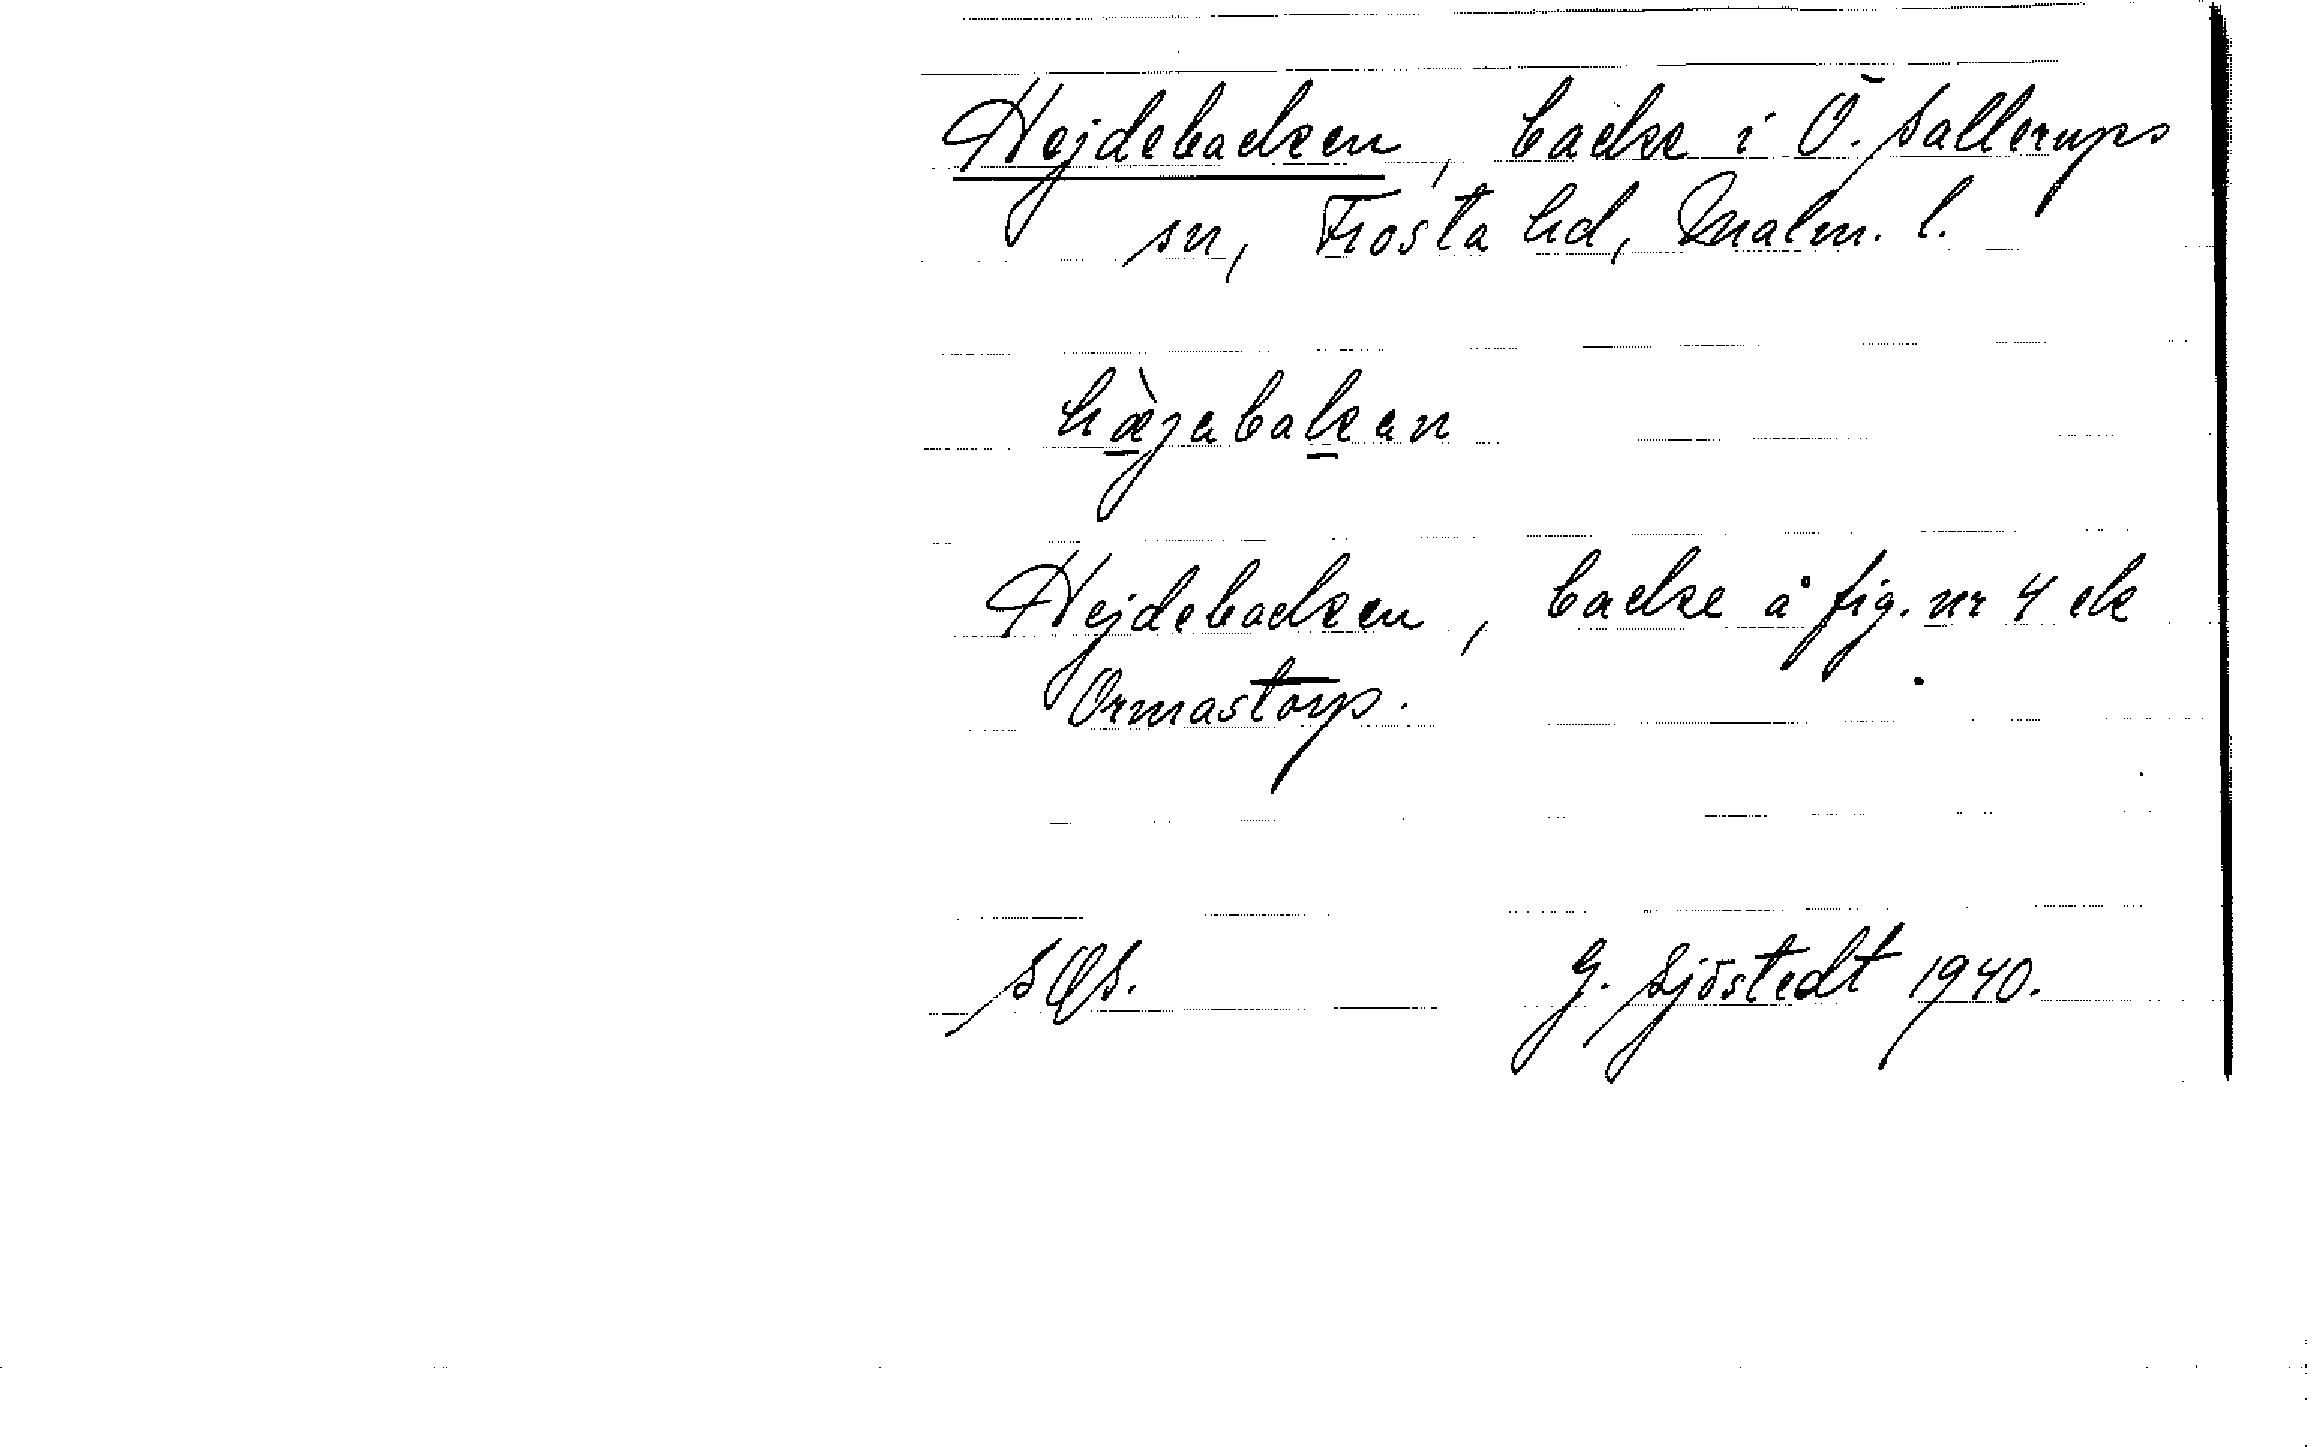 Hejdebacken, backe i Ö. Sallerups
sn, Frosta hd, Malm. l.
hæ̀jabakan
Hejdebacken, backe å fig. nr 4 ek
Ormastorp.
SOS.
G. Sjöstedt 1940.